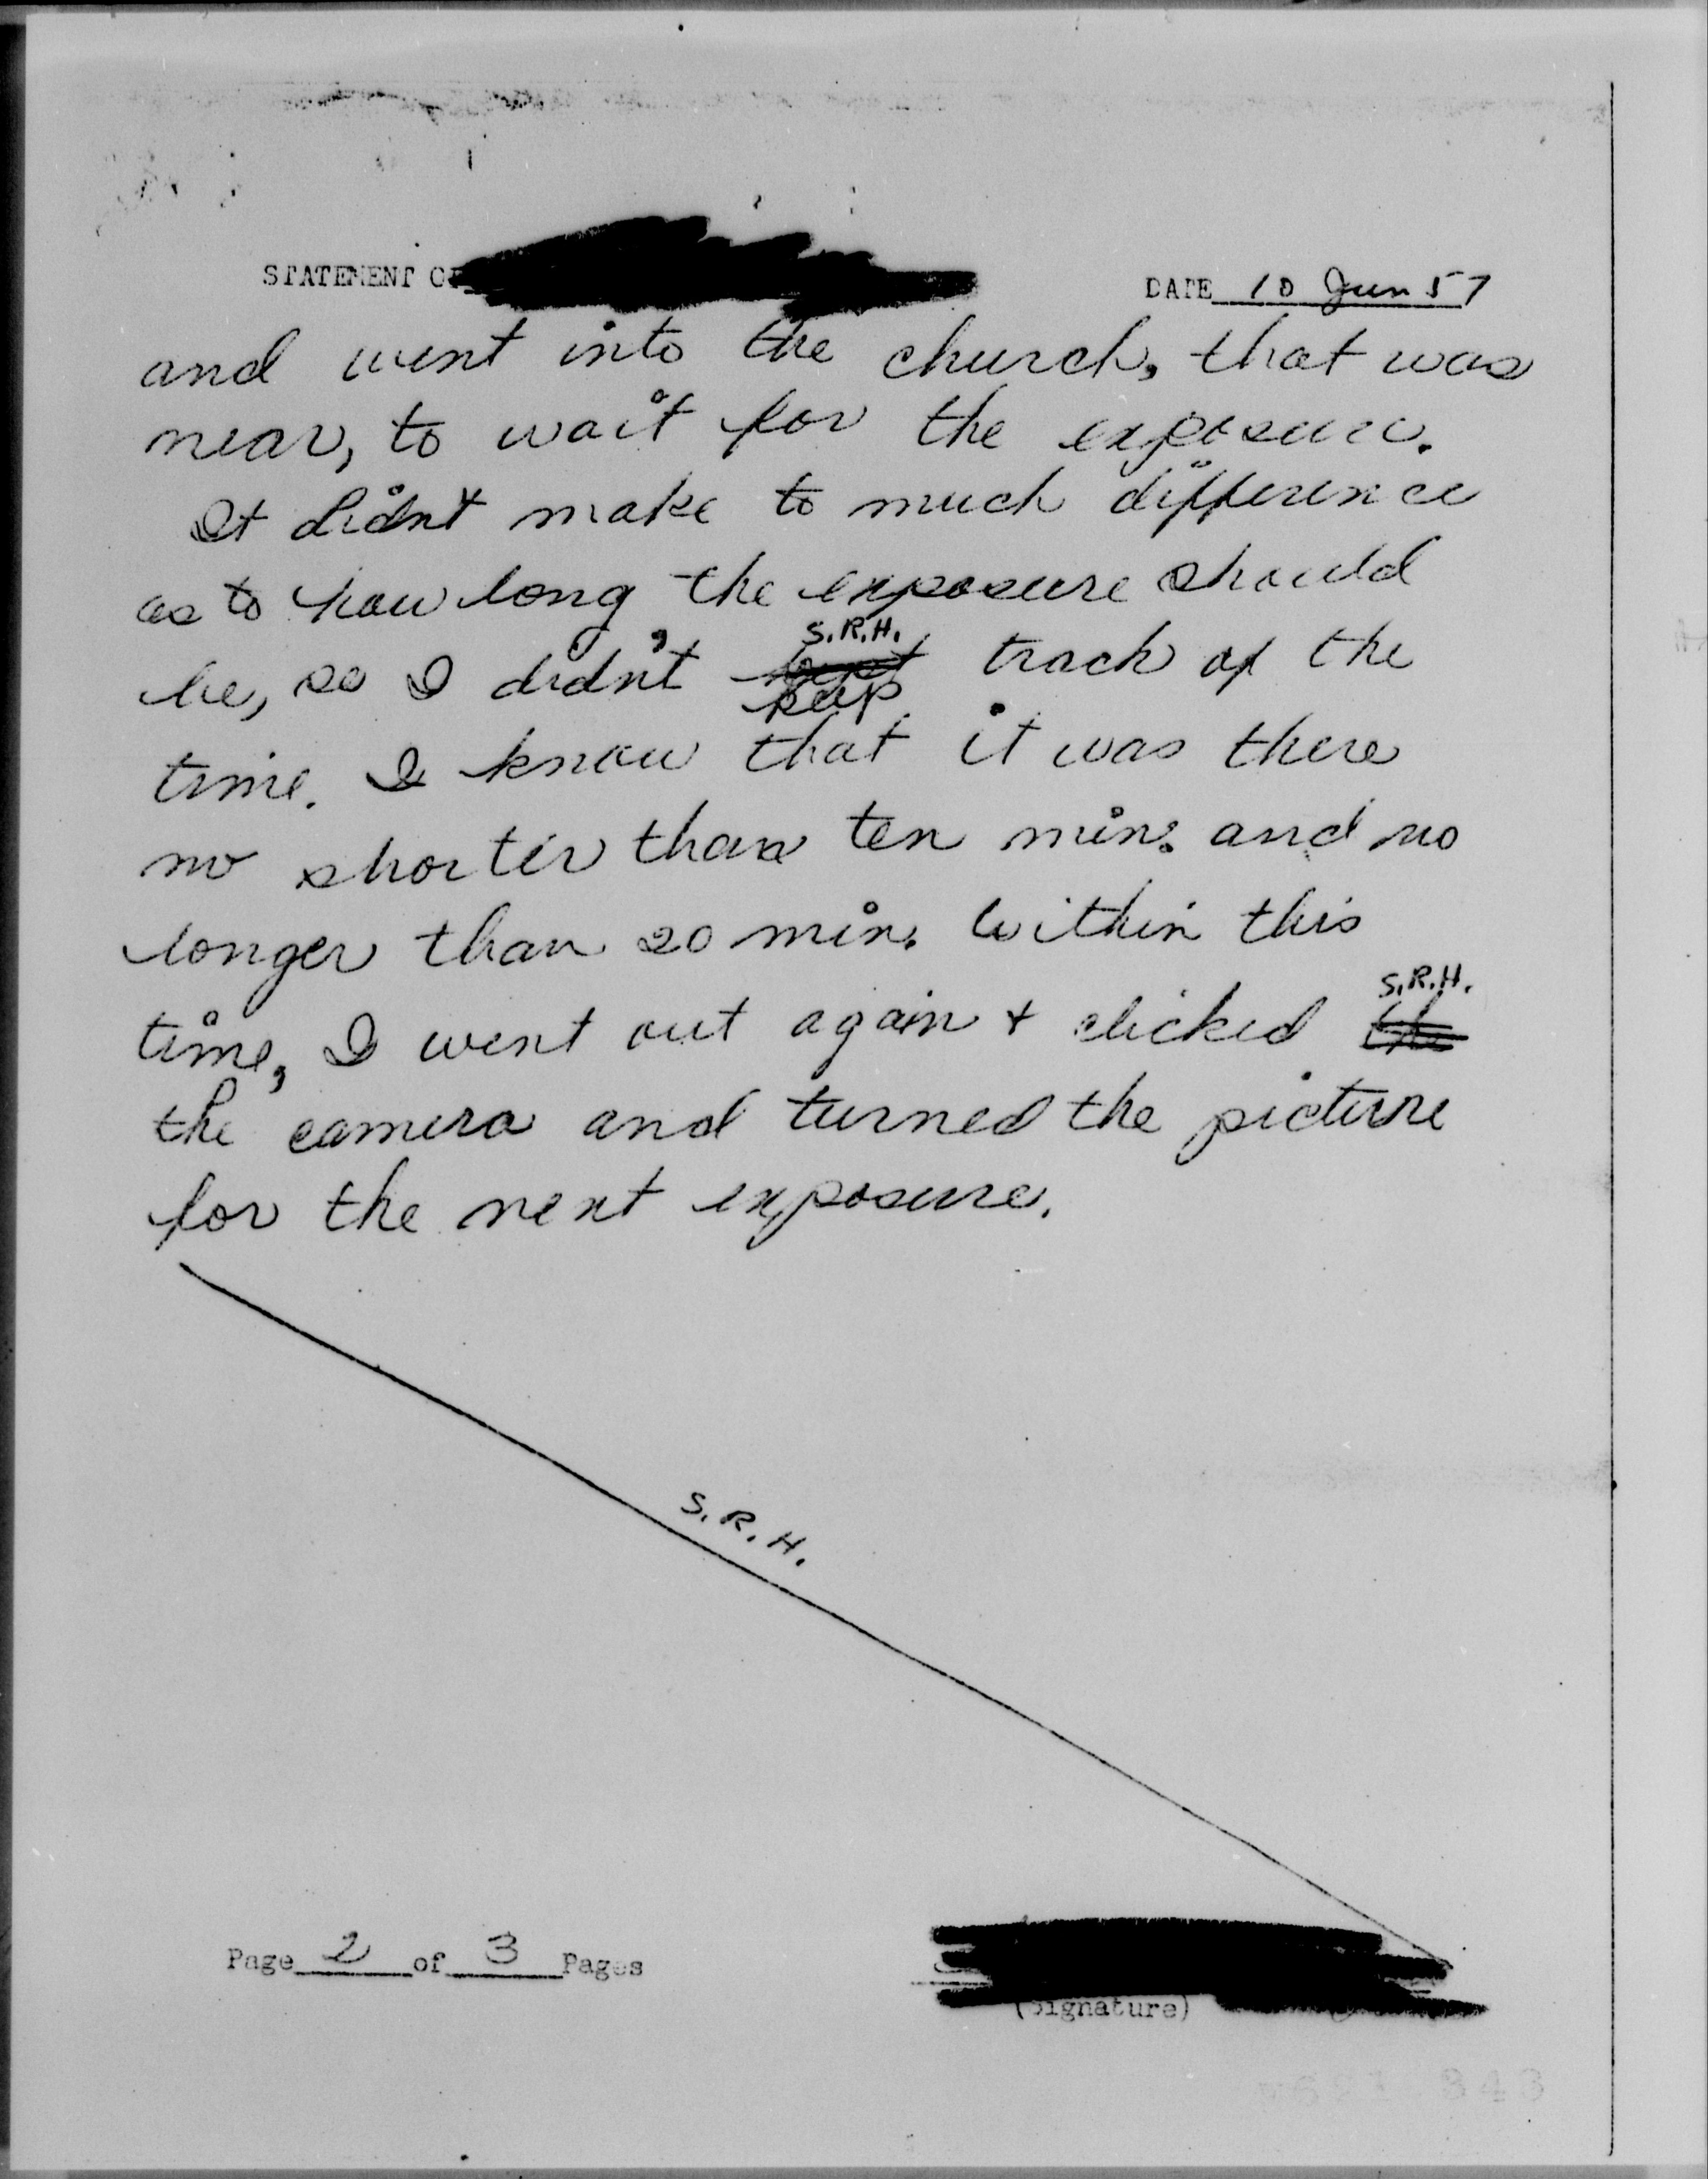 STATEMENT OF
DATE 10 Jun 57
and went into the church, that was
near, to wait for the exposure.
It didn't make to much difference
as to how long the exposure should
S.R.H.
be, so I didn't kept track of the
keep
time. I know that it was there
no shorter than ten min. and no
longer than 20 min. Within this
S.R.H.
time, I went out again + clicked the
the camera and turned the picture
for the next exposure.
S.R.H.
Page 2 of 3 Pages
(Signature)